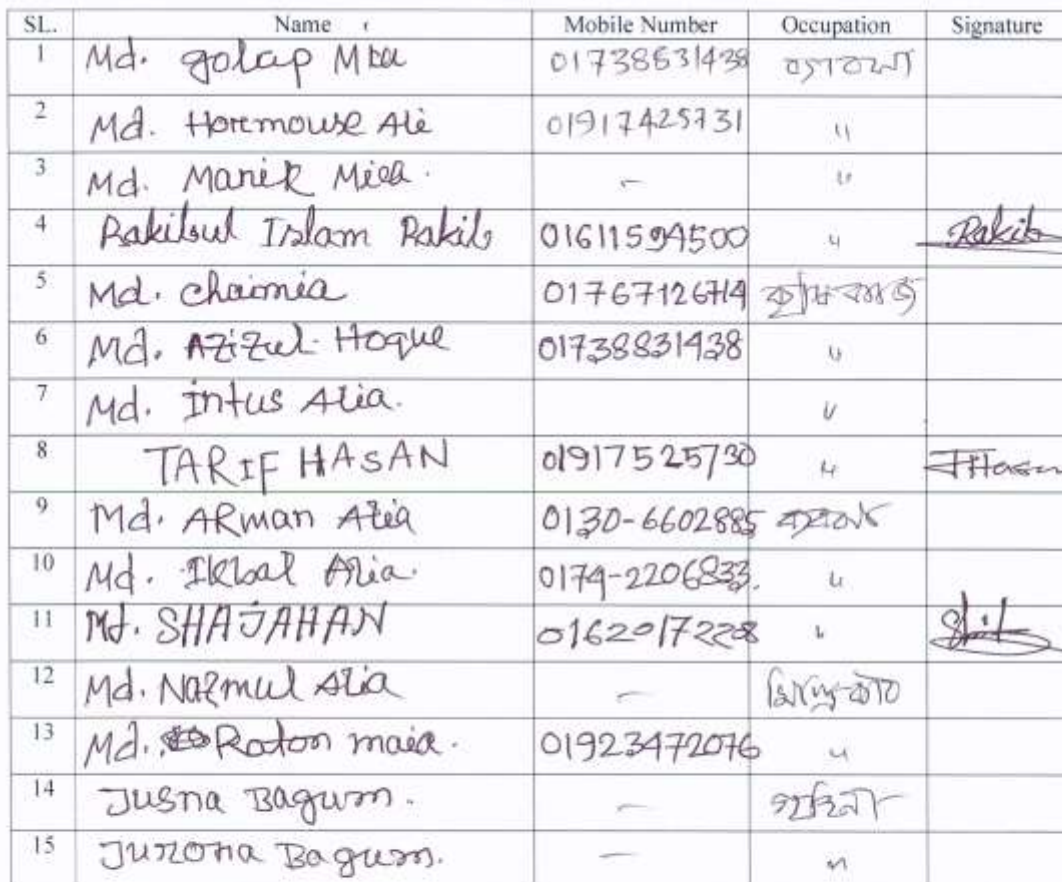 SL. Name Mobile Number Occupation Signature
1 Md. golap Mia 01738631438
2 Md. Horemouse Ali 01917425731 "
3 Md. Manik Miea. - "
4 Rakibul Islam Rakib 01611594500 " Rakib
5 Md. chaimia 01767126714
6 Md. Azizul Hoque 01738831438 "
7 Md. intus Alia. "
8 TARIF HASAN 01917525730 " Hasan
9 Md. ARman Alia 0130-6602885
10 Md. Ikbal Alia. 0174-2206833. "
11 Md. SHAJAHAN 01620172208 "
12 Md. Nazmul Alia -
13 Md. Raton maia. 01923472076 "
14 Jusna Bagum. - গৃহিনী
15 Junona Bagum. - "